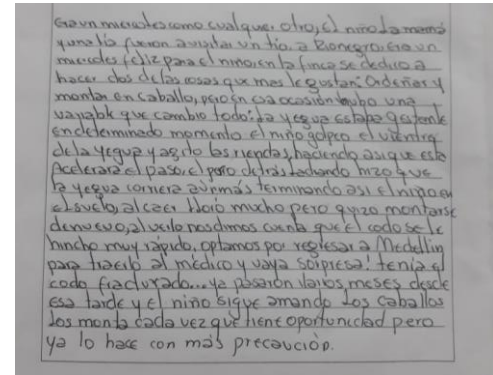 Era un miercoles como cualquier otro, el niño la mamá
y una tía fueron a visitar un tío, a Rionegro, era un
miercoles feliz para el niño, en la finca se dedico a
hacer dos de las cosas que mas le gustan: Ordeñar y
montar en caballo, pero en esa ocasión hubo una
variable que cambio todo: la yegua estaba gestante
en determinado momento el niño golpeo el vientre
de la yegua y agito las riendas, haciendo asi que esta
Acelerara el paso, el perro detrás ladrando hizo que
la yegua corriera aún más terminando asi el niño en
el suelo, al caer lloró mucho pero quizo montarse
denuevo, al verlo nos dimos cuenta que el codo se le
hincho muy rápido, optamos por regresar a Medellín
para traerlo al médico y vaya sorpresa! tenía el
codo fracturado... ya pasarón varios meses desde
esa tarde y el niño sigue amando los caballos
los monta cada vez que tiene oportunidad pero
ya lo hace con más precaución.